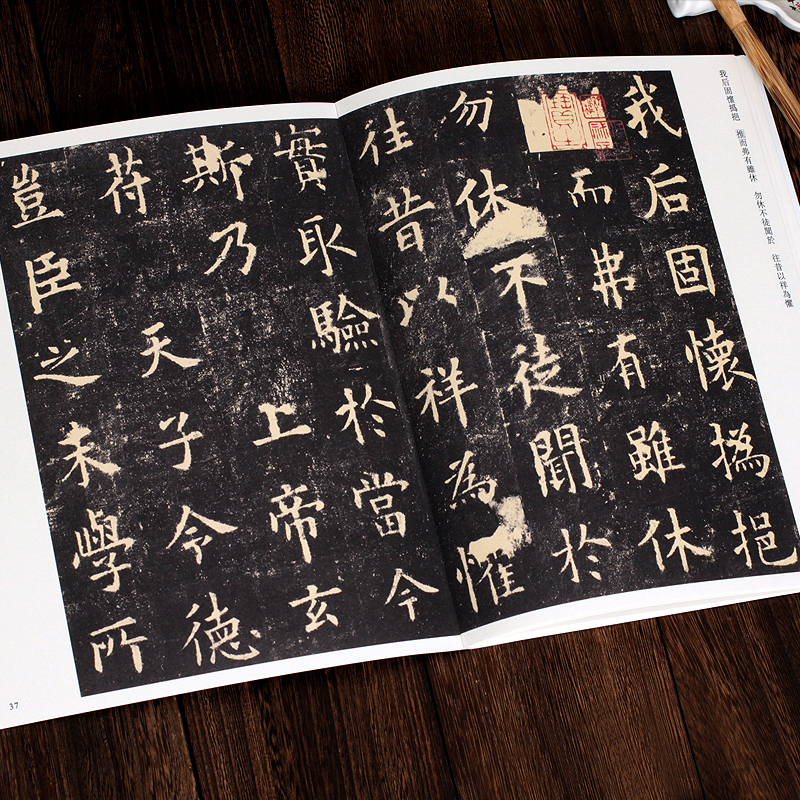 我后固懷撝挹
而弗有雖休
勿休不徒聞於
往昔以祥為懼
實取驗於當今
斯乃 上帝玄
苻 天子令德
豈臣之末學所
我后固懷撝挹 推而弗有雖休 勿休不徒聞於 往昔以祥為懼
37